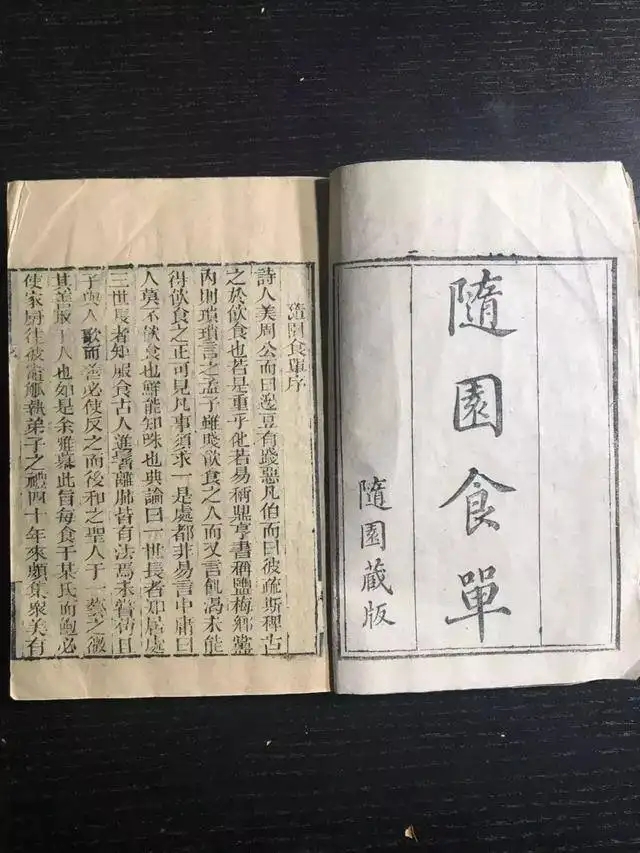 隨園食單
隨園藏版
隨園食單序
詩人美周公而曰籩豆有踐惡凡伯而曰彼疏斯稗古
之於飲食也若是重乎他若易稱鼎亨書稱鹽梅鄉黨
內則瑣瑣言之孟子雖賤飲食之人而又言飢渴未能
得飲食之正可見凡事須求一是處都非易言中庸曰
人莫不飲食也鮮能知味也典論曰一世長者知居處
三世長者知服食古人進鬐離肺皆有法焉未嘗苟且
子與人歌而善必使反之而後和之聖人于一藝之微
其善取于人也如是余雅慕此旨每食于某氏而飽必
使家廚往彼竈觚執弟子之禮四十年來頗集衆美有